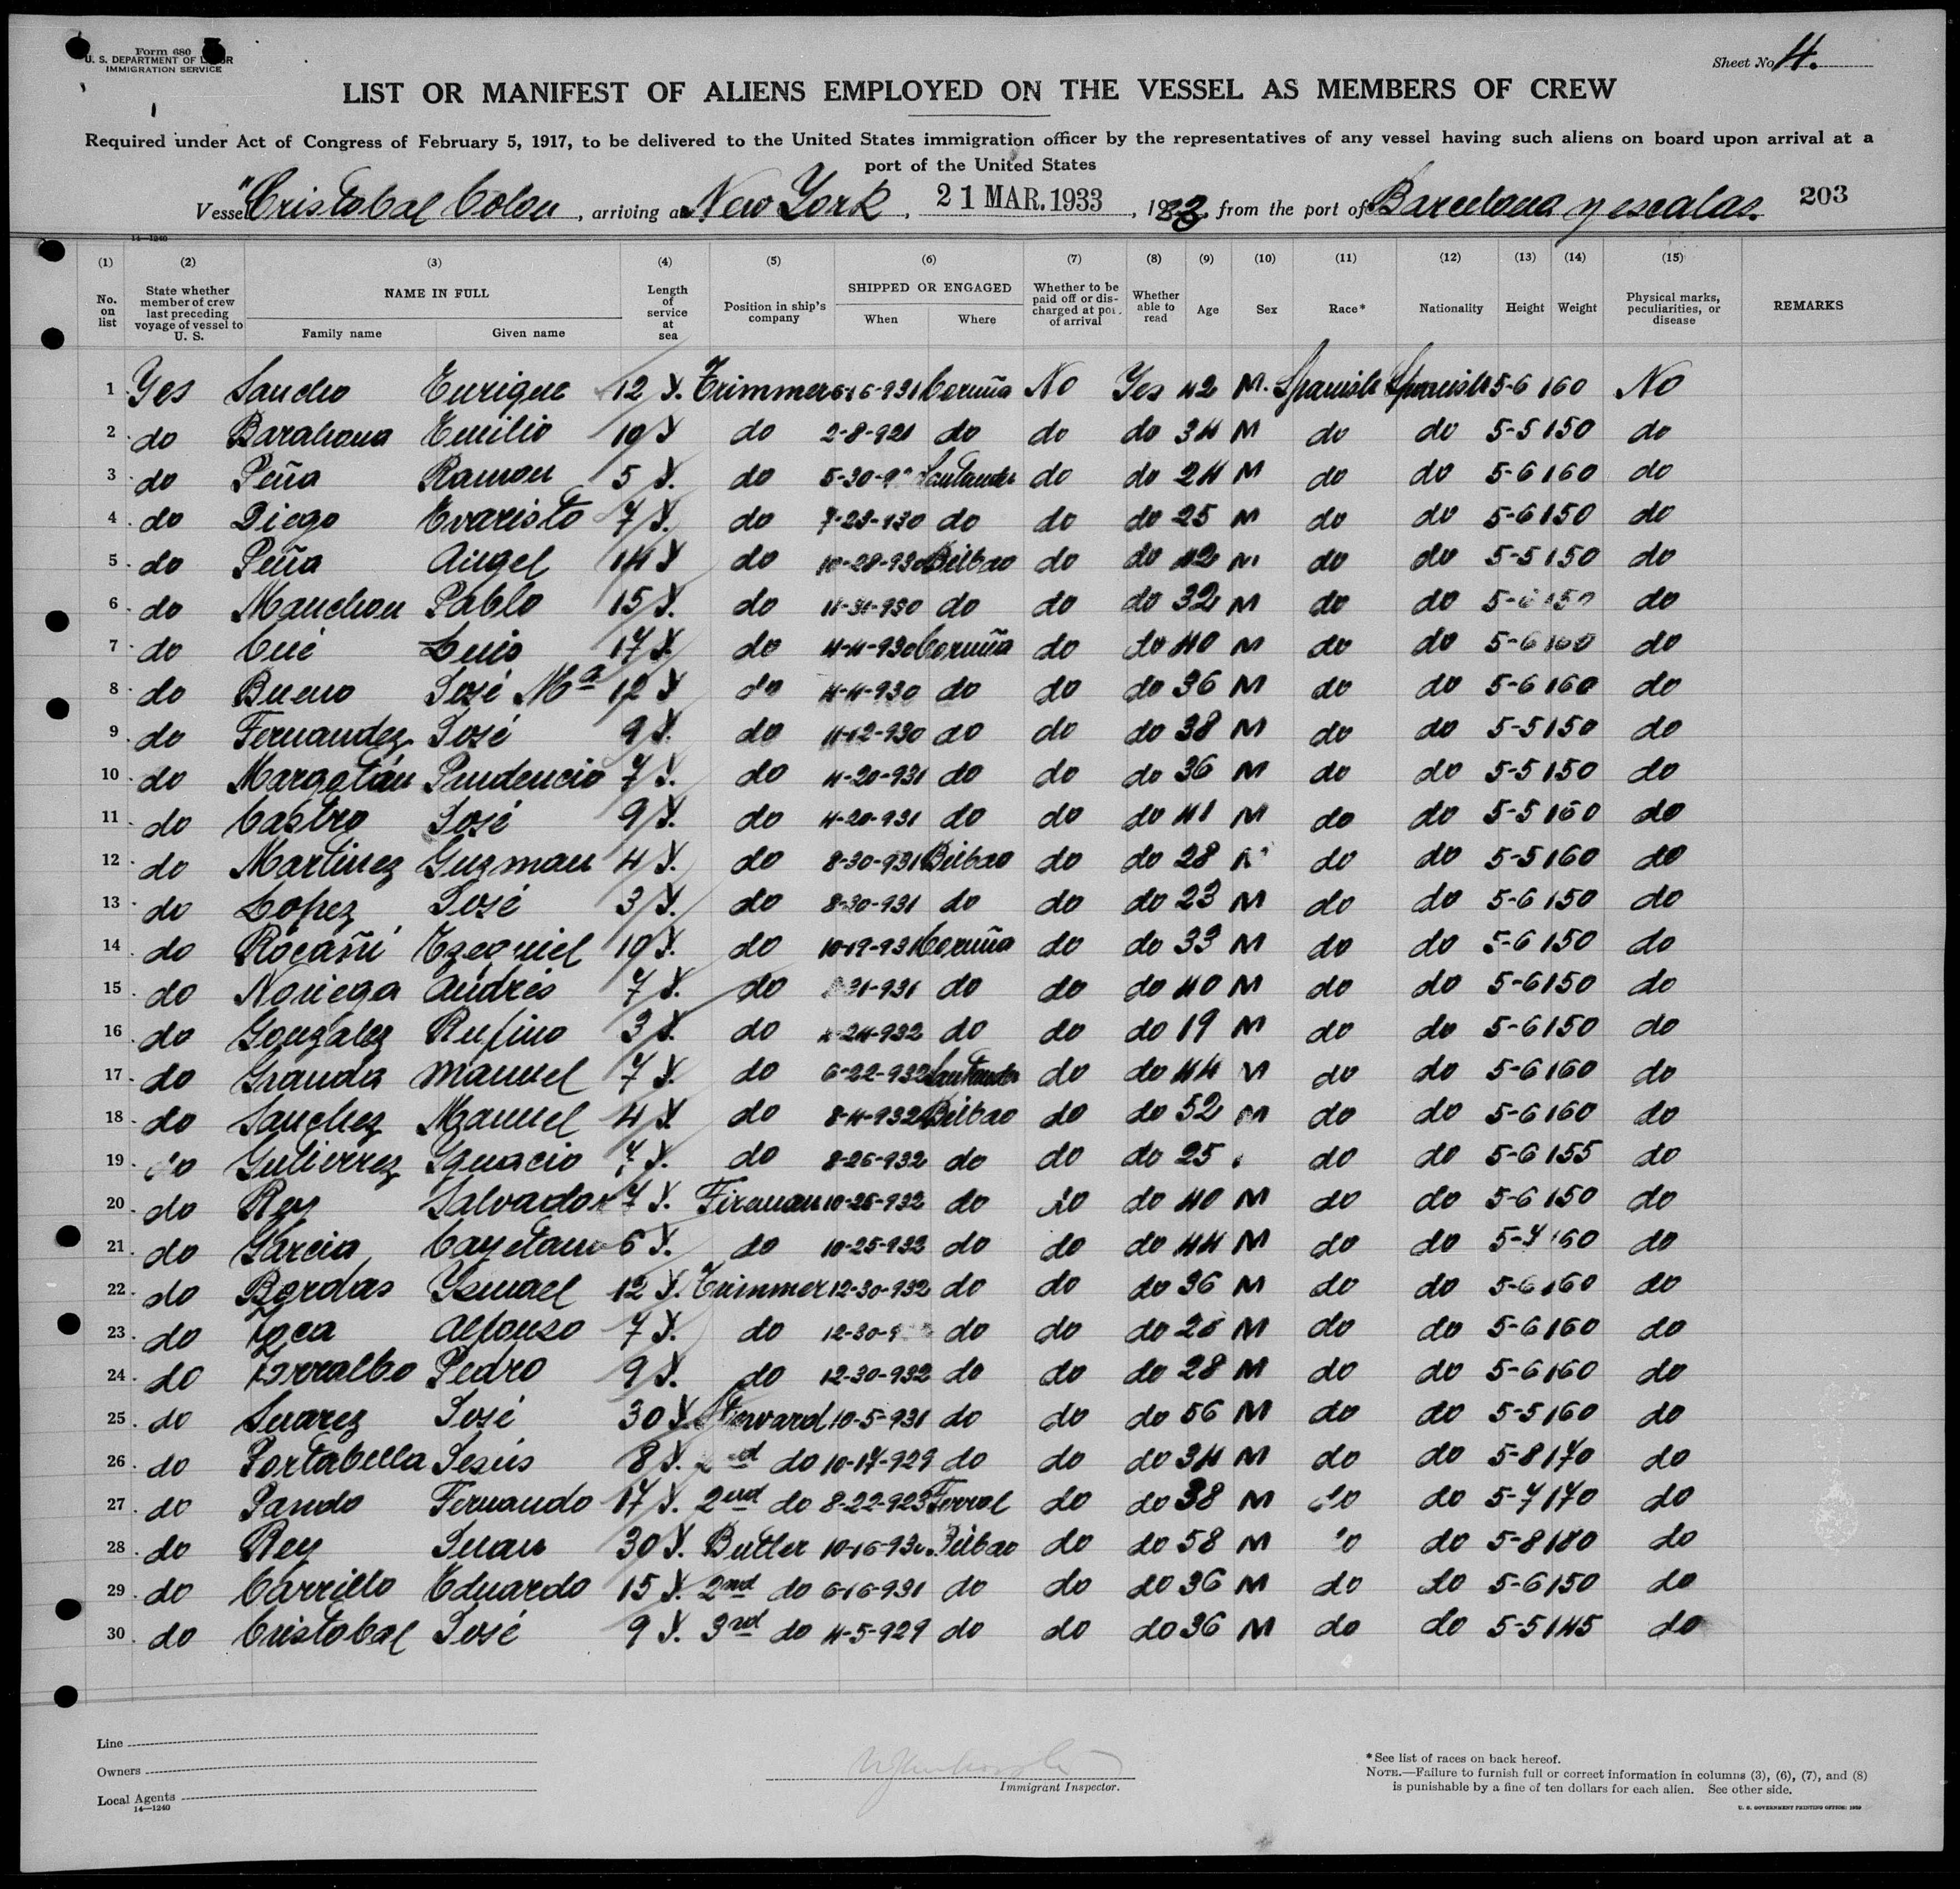 Form 680
U. S. DEPARTMENT OF LABOR
IMMIGRATION SERVICE
Sheet No. 4.
LIST OR MANIFEST OF ALIENS EMPLOYED ON THE VESSEL AS MEMBERS OF CREW
Required under Act of Congress of February 5, 1917, to be delivered to the United States immigration officer by the representatives of any vessel having such aliens on board upon arrival at a
port of the United States
Vessel "Cristobal Colon, arriving at New York, 21 MAR. 1933, 1933, from the port of Barcelona y escalas. 203
14—1240
(1) (2) (3) (4) (5) (6) (7) (8) (9) (10) (11) (12) (13) (14) (15)
No. on list State whether member of crew last preceding voyage of vessel to U. S. NAME IN FULL Family name Given name Length of service at sea Position in ship's company SHIPPED OR ENGAGED When Where Whether to be paid off or discharged at port of arrival Whether able to read Age Sex Race* Nationality Height Weight Physical marks, peculiarities, or disease REMARKS
1 Yes Sancho Enrique 12 Y. Trimmer 6-16-931 Coruña No Yes 42 M. Spanish Spanish 5-6 160 No
2 do Barahona Emilio 10 Y do 2-8-921 do do do 34 M do do 5-5 150 do
3 do Peña Ramon 5 Y. do 5-30- Santander do do 24 M do do 5-6 160 do
4 do Diego Evaristo 7 Y. do 7-23-930 do do do 25 M do do 5-6 150 do
5 do Peña Angel 14 Y do 10-28-930 Bilbao do do 42 M do do 5-5 150 do
6 do Manchon Pablo 15 Y. do 11-31-930 do do do 32 M do do 5-6 150 do
7 do Cué Luis 17 Y. do 4-4-930 Coruña do do 40 M do do 5-6 160 do
8 do Bueno José Mª 12 Y do 4-4-930 do do do 36 M do do 5-6 160 do
9 do Fernandez José 9 Y. do 11-12-930 do do do 38 M do do 5-5 150 do
10 do Margotán Prudencio 7 Y. do 4-20-931 do do do 36 M do do 5-5 150 do
11 do Castro José 9 Y. do 4-20-931 do do do 41 M do do 5-5 160 do
12 do Martinez Guzman 4 Y. do 8-30-931 Bilbao do do 28 M do do 5-5 160 do
13 do Lopez José 3 Y. do 8-30-931 do do do 23 M do do 5-6 150 do
14 do Rocañi Ezequiel 10 Y. do 10-19-931 Coruña do do 33 M do do 5-6 150 do
15 do Noriega Andrés 7 Y. do 31-931 do do do 40 M do do 5-6 150 do
16 do Gonzalez Rufino 3 Y. do 24-932 do do do 19 M do do 5-6 150 do
17 do Granda Manuel 7 Y. do 6-22-932 Santander do do 44 M do do 5-6 160 do
18 do Sanchez Manuel 4 Y. do 8-4-932 Bilbao do do 52 M do do 5-6 160 do
19 do Gutierrez Ignacio 7 Y. do 8-26-932 do do do 25 do do 5-6 155 do
20 do Rey Salvador 7 Y. Fireman 10-25-932 do do do 40 M do do 5-6 150 do
21 do Garcia Cayetano 6 Y. do 10-25-932 do do do 44 M do do 5-7 160 do
22 do Bordas Ismael 12 Y. Trimmer 12-30-932 do do do 36 M do do 5-6 160 do
23 do Alfonso 7 Y. do 12-30-9 do do do M do do 5-6 160 do
24 do Torralbo Pedro 9 Y. do 12-30-932 do do do 28 M do do 5-6 160 do
25 do Suarez José 30 Y. Steward 10-5-931 do do do 56 M do do 5-5 160 do
26 do Portabella Jesús 8 Y. 2nd do 10-17-929 do do do 34 M do do 5-8 170 do
27 do Pando Fernando 17 Y. 2nd do 8-22-923 Ferrol do do 38 M do do 5-7 170 do
28 do Rey Juan 30 Y. Butler 10-16-930 Bilbao do do 58 M do do 5-8 180 do
29 do Carrillo Eduardo 15 Y. 2nd do 6-16-931 do do do 36 M do do 5-6 150 do
30 do Cristobal José 9 Y. 3rd do 4-5-929 do do do 36 M do do 5-5 145 do
Line
Owners
Local Agents
14—1240
Immigrant Inspector.
* See list of races on back hereof.
NOTE.—Failure to furnish full or correct information in columns (3), (6), (7), and (8)
is punishable by a fine of ten dollars for each alien. See other side.
U. S. GOVERNMENT PRINTING OFFICE: 1929